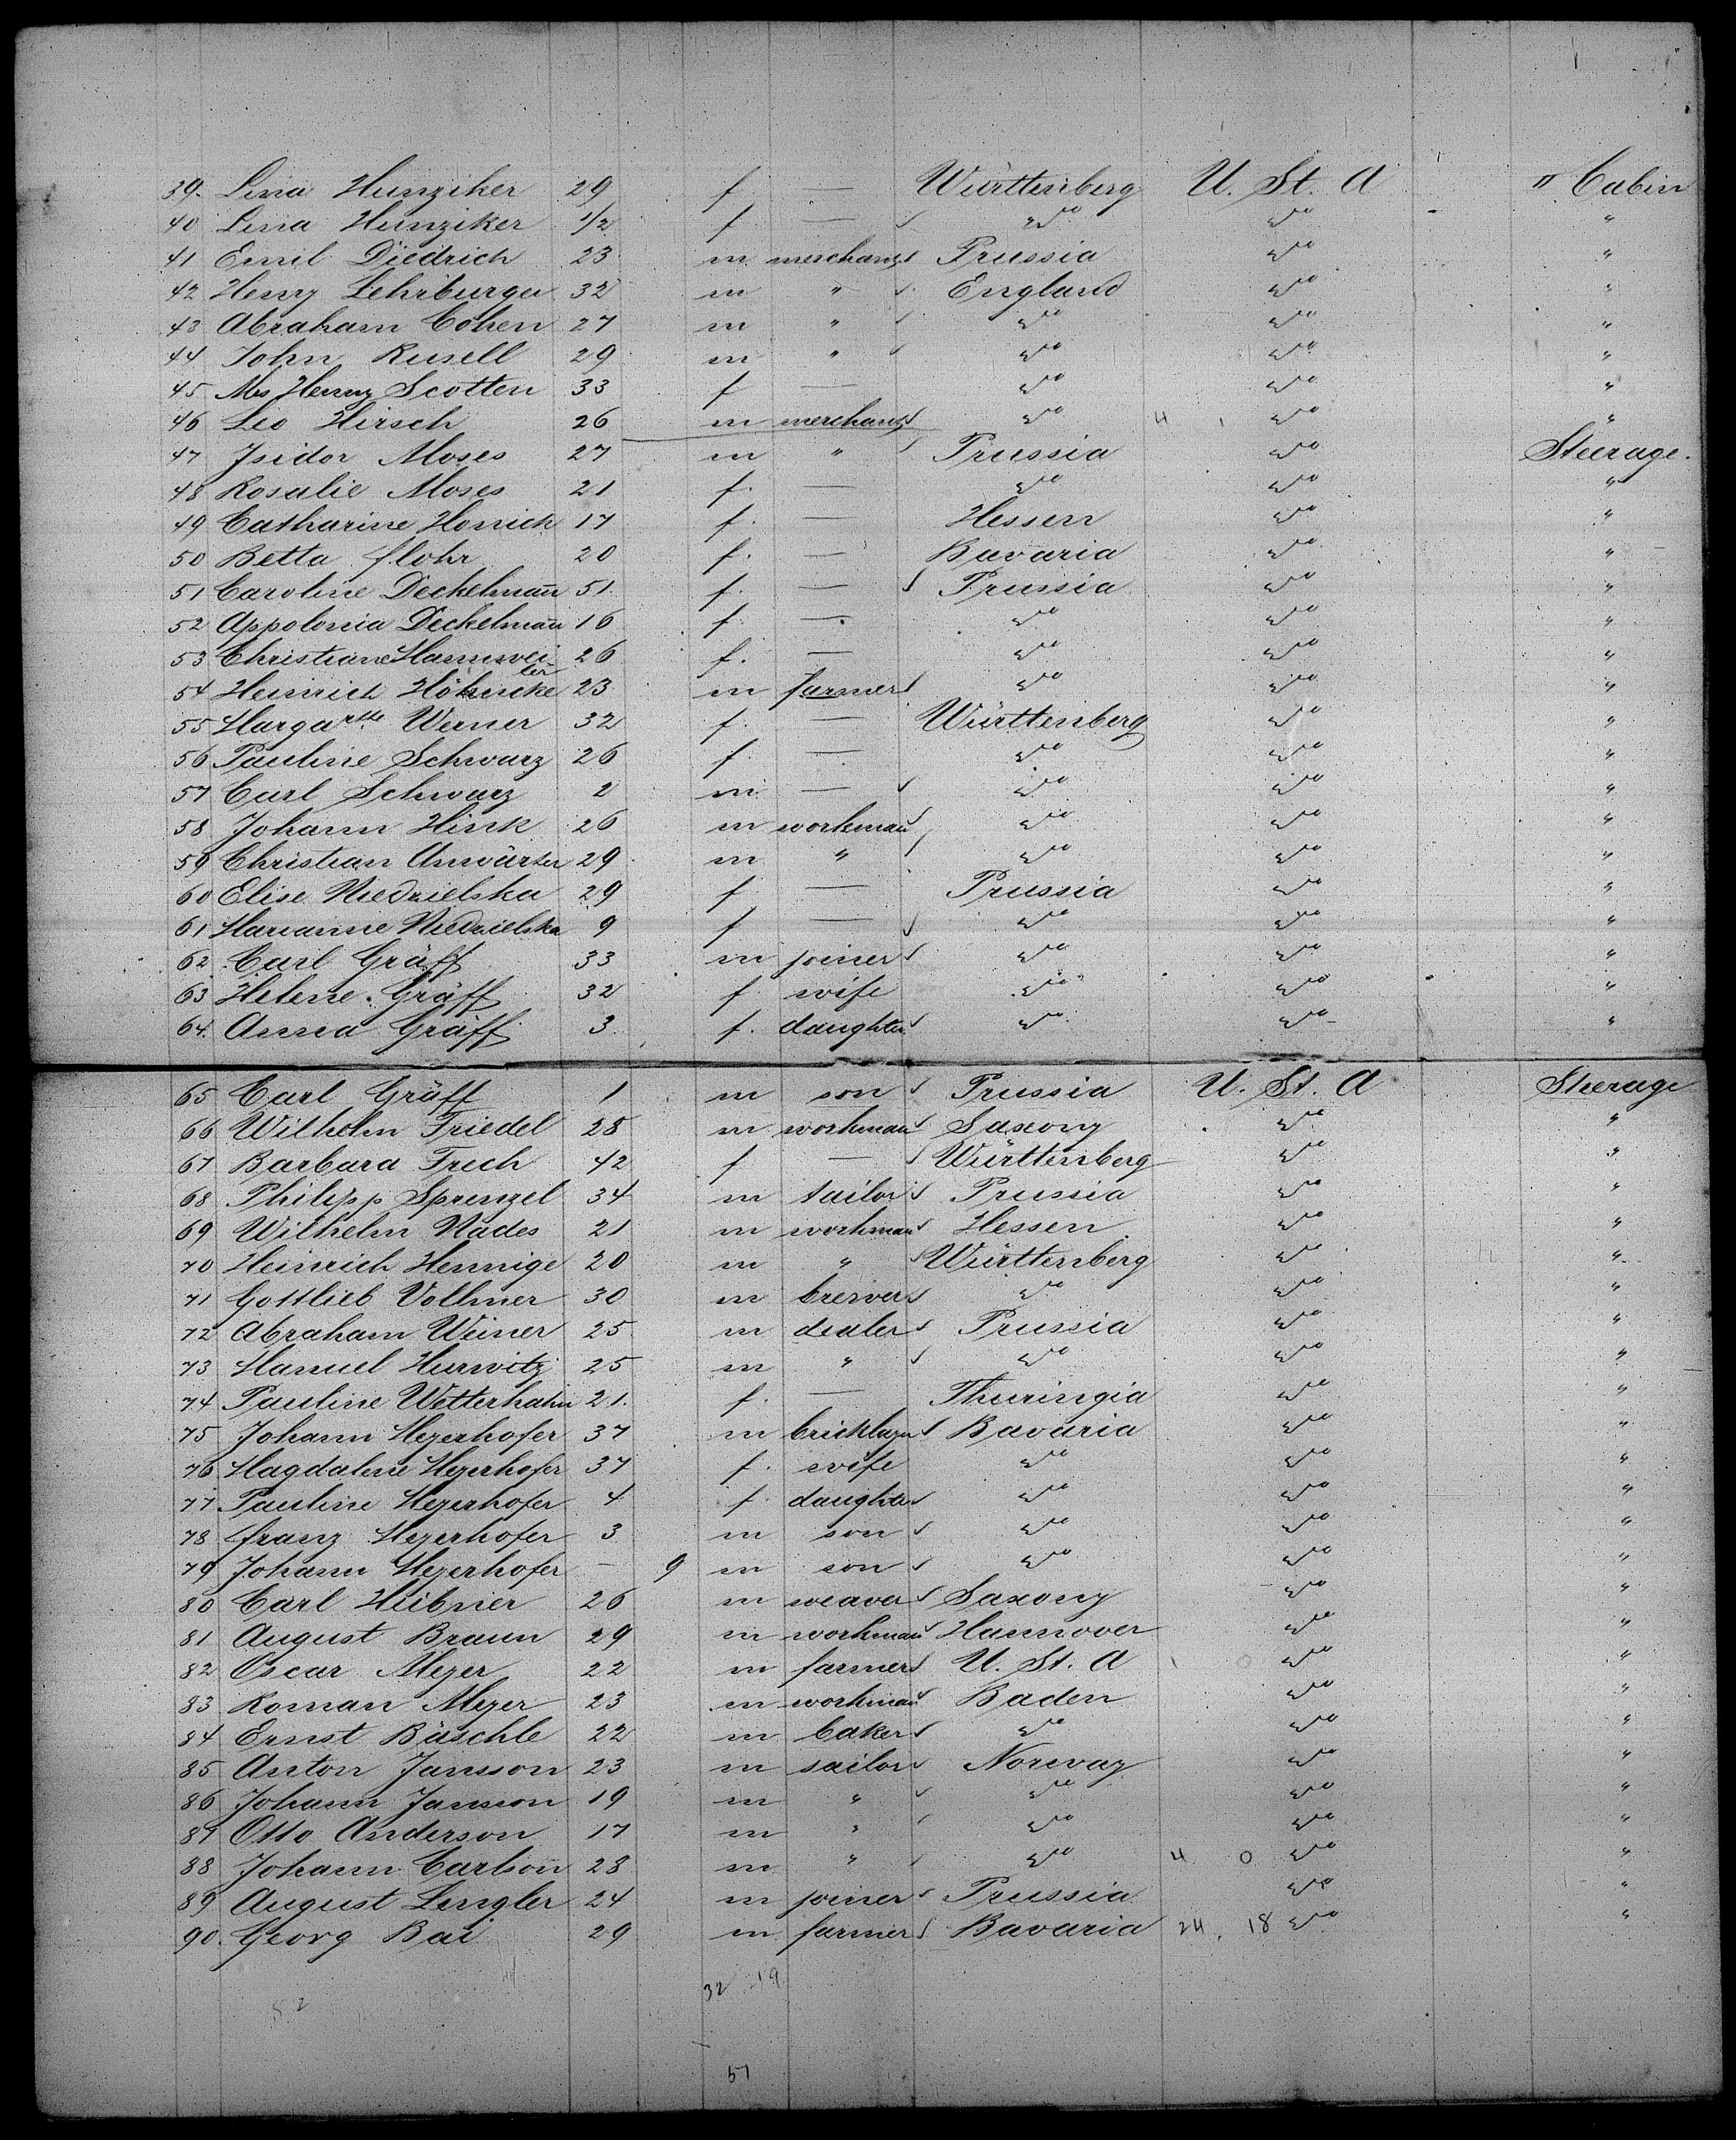 39. Lina Hunziker 29 f — Württenberg U. St. A II Cabin
40 Lina Hunziker 1/2 f — do do "
41 Emil Diedrich 23 m merchant Prussia do "
42 Henry Lehrburger 32 m " England do "
43 Abraham Cohen 27 m " do do "
44 John Rusell 29 m " do do "
45 Mrs Henry Scotten 33 f — do do "
46 Leo Hirsch 26 m merchant do 4 do "
47 Isidor Moses 27 m " Prussia do Steerage.
48 Rosalie Moses 21 f. — do do "
49 Catharine Honich 17 f. — Hessen do "
50 Betta Flohr 20 f. — Bavaria do "
51 Caroline Deckelmañ 51 f. — Prussia do "
52 Appolonia Deckelmañ 16 f. — do do "
53 Christiane Hammei- 26 f. — do do "
ter
54 Heinrich Höhncke 23 m farmer do do "
55 Margarethe Werner 32 f. — Württenberg do "
56 Pauline Schwarz 26 f. — do do "
57 Carl Schwarz 2 m — do do "
58 Johann Hink 26 m workman do do "
59 Christian Anwärter 29 m " do do "
60 Elise Niedzielska 29 f — Prussia do "
61 Marianne Niedzielska 9 f — do do "
62 Carl Gräff 33 m joiner do do "
63 Helene Gräff 32 f wife do do "
64. Anna Gräff 3 f. daughter do do "
65 Carl Gräff 1 m son Prussia U. St. A Steerage
66 Wilhelm Friedel 28 m workman Saxony do "
67 Barbara Frech 42 f — Württenberg do "
68 Philipp Sprenzel 34 m tailor Prussia do "
69 Wilhelm Nades 21 m workman Hessen do "
70 Heinrich Hennige 20 m " Württenberg do "
71 Gottlieb Vollmer 30 m brewer do do "
72 Abraham Weiner 25 m dealer Prussia do "
73 Manuel Hurwitz 25 m " do do "
74 Pauline Wetterhahn 21. f. — Thuringia do "
75 Johann Heyerhofer 37 m bricklayer Bavaria do "
76 Magdalene Heyerhofer 37 f. wife do do "
77 Pauline Heyerhofer 4 f. daughter do do "
78 Franz Heyerhofer 3 m son do do "
79 Johann Heyerhofer — 9 m son do do "
80 Carl Hübner 26 m weaver Saxony do "
81 August Braun 29 m workman Hannover do "
82 Oscar Meyer 22 m farmer U. St. A 0 do "
83 Roman Meyer 23 m workman Baden do "
84 Ernst Bäschle 22 m baker do do "
85 Anton Jansson 23 m sailor Norway do "
86 Johann Jansson 19 m " do do "
87 Otto Anderson 17 m " do do "
88 Johann Carlson 28 m " do 4 0 do "
89 August Lengler 24 m joiner Prussia do "
90. Georg Bai 29 m farmer Bavaria 24 18 do "
32 19
52
51